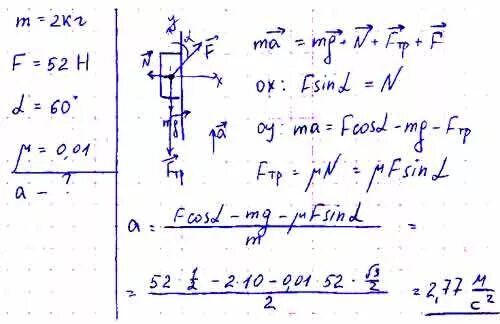 m = 2кг
F = 52 Н
α = 60°
μ = 0,01
a – ?
y
N⃗
α
F⃗
x
mg⃗
a⃗
F⃗тр
ma⃗ = mg⃗ + N⃗ + F⃗тр + F⃗
ox: Fsinα = N
oy: ma = Fcosα – mg – Fтр
Fтр = μN = μFsinα
a = (Fcosα – mg – μFsinα)/m =
= (52 · 1/2 – 2·10 – 0,01 · 52 · √3/2)/2 = 2,77 м/с²